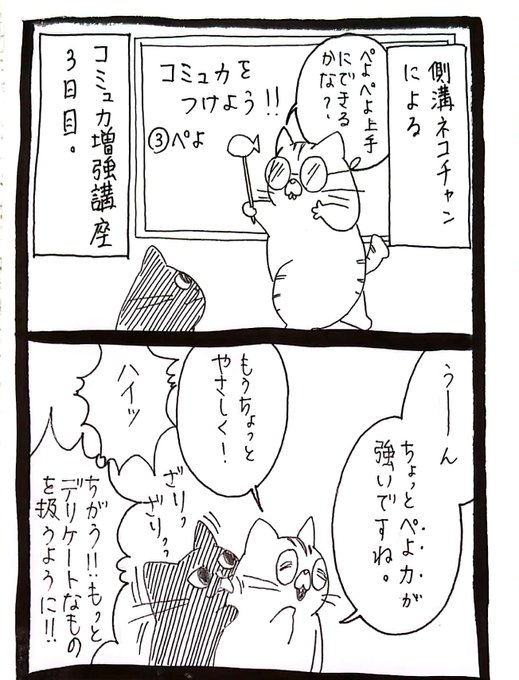 側溝ネコチャン
による
ぺよぺよ上手
にできる
かな?
コミュカを
つけよう!!
③ぺよ
コミュカ増強講座
3日目。
うーん
ちょっとぺよ力が
強いですね。
もうちょっと
やさしく!
ハイッ
ざりっ
ざりっっ
ちがう!!もっと
デリケートなもの
を扱うように!!